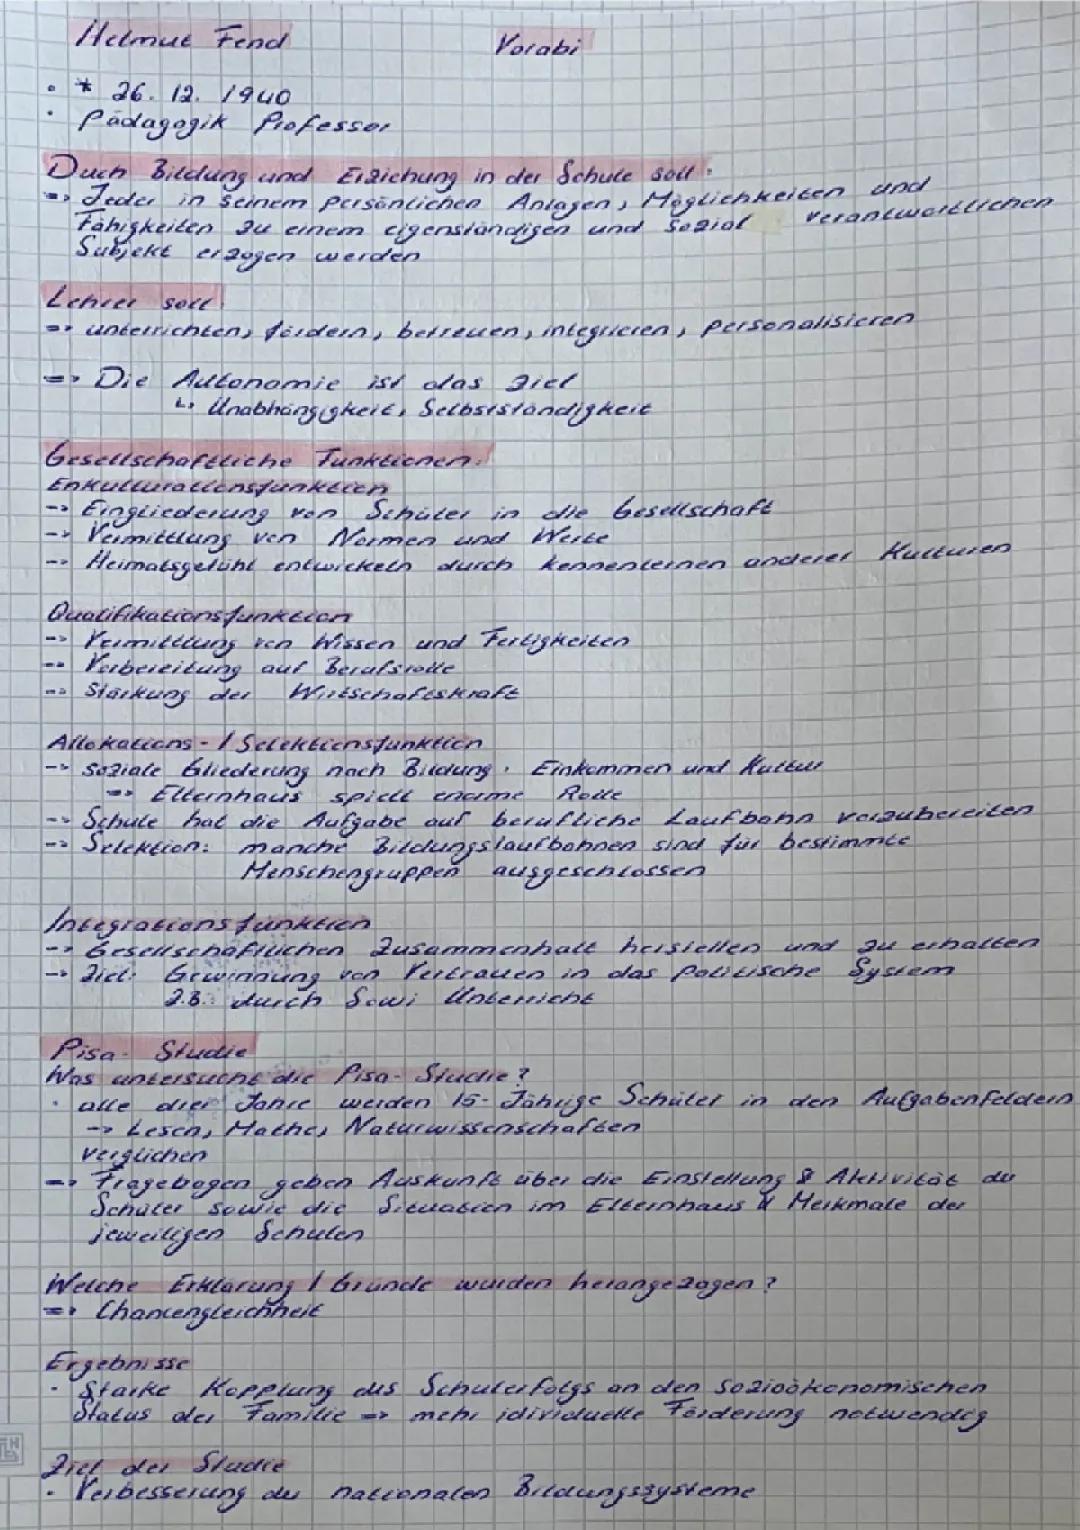 Helmut Fend
Vorabi
• * 26. 12. 1940
• Pädagogik Professor
Duch Bildung und Erziehung in der Schule soll:
=> Jeder in seinem persönlichen Anlagen, Möglichkeiten und
Fähigkeiten zu einem eigenständigen und sozial verantwortlichen
Subjekt erzogen werden
Lehrer soll:
=> unterrichten, fördern, betreuen, integrieren, personalisieren
=> Die Autonomie ist das Ziel
↳ Unabhängigkeit, Selbstständigkeit
Gesellschaftliche Funktionen:
Enkulturationsfunktion
-> Eingliederung von Schüler in die Gesellschaft
-> Vermittlung von Normen und Werte
-> Heimatsgefühl entwickeln durch kennenlernen anderer Kulturen
Qualifikationsfunktion
-> Vermittlung von Wissen und Fertigkeiten
-> Vorbereitung auf Berufsrolle
-> Stärkung der Wirtschaftskraft
Allokations- / Selektionsfunktion
-> soziale Gliederung nach Bildung, Einkommen und Kultur
=> Elternhaus spielt enorme Rolle
-> Schule hat die Aufgabe auf berufliche Laufbahn vorzubereiten
-> Selektion: manche Bildungslaufbahnen sind für bestimmte
Menschengruppen ausgeschlossen
Integrationsfunktion
-> Gesellschaftlichen Zusammenhalt herstellen und zu erhalten
-> Ziel: Gewinnung von Vertrauen in das politische System
z.B. durch Sowi Unterricht
Pisa- Studie
Was untersucht die Pisa-Studie?
• alle drei Jahre werden 15-Jährige Schüler in den Aufgabenfeldern
-> Lesen, Mathe, Naturwissenschaften
verglichen
=> Fragebogen geben Auskunft über die Einstellung & Aktivität der
Schüler sowie die Situation im Elternhaus & Merkmale der
jeweiligen Schulen
Welche Erklärung / Gründe wurden herangezogen?
=> Chancengleichheit
Ergebnisse
• Starke Kopplung des Schulerfolgs an den sozioökonomischen
Status der Familie => mehr idividuelle Förderung notwendig
Ziel der Studie
• Verbesserung der nationalen Bildungssysteme